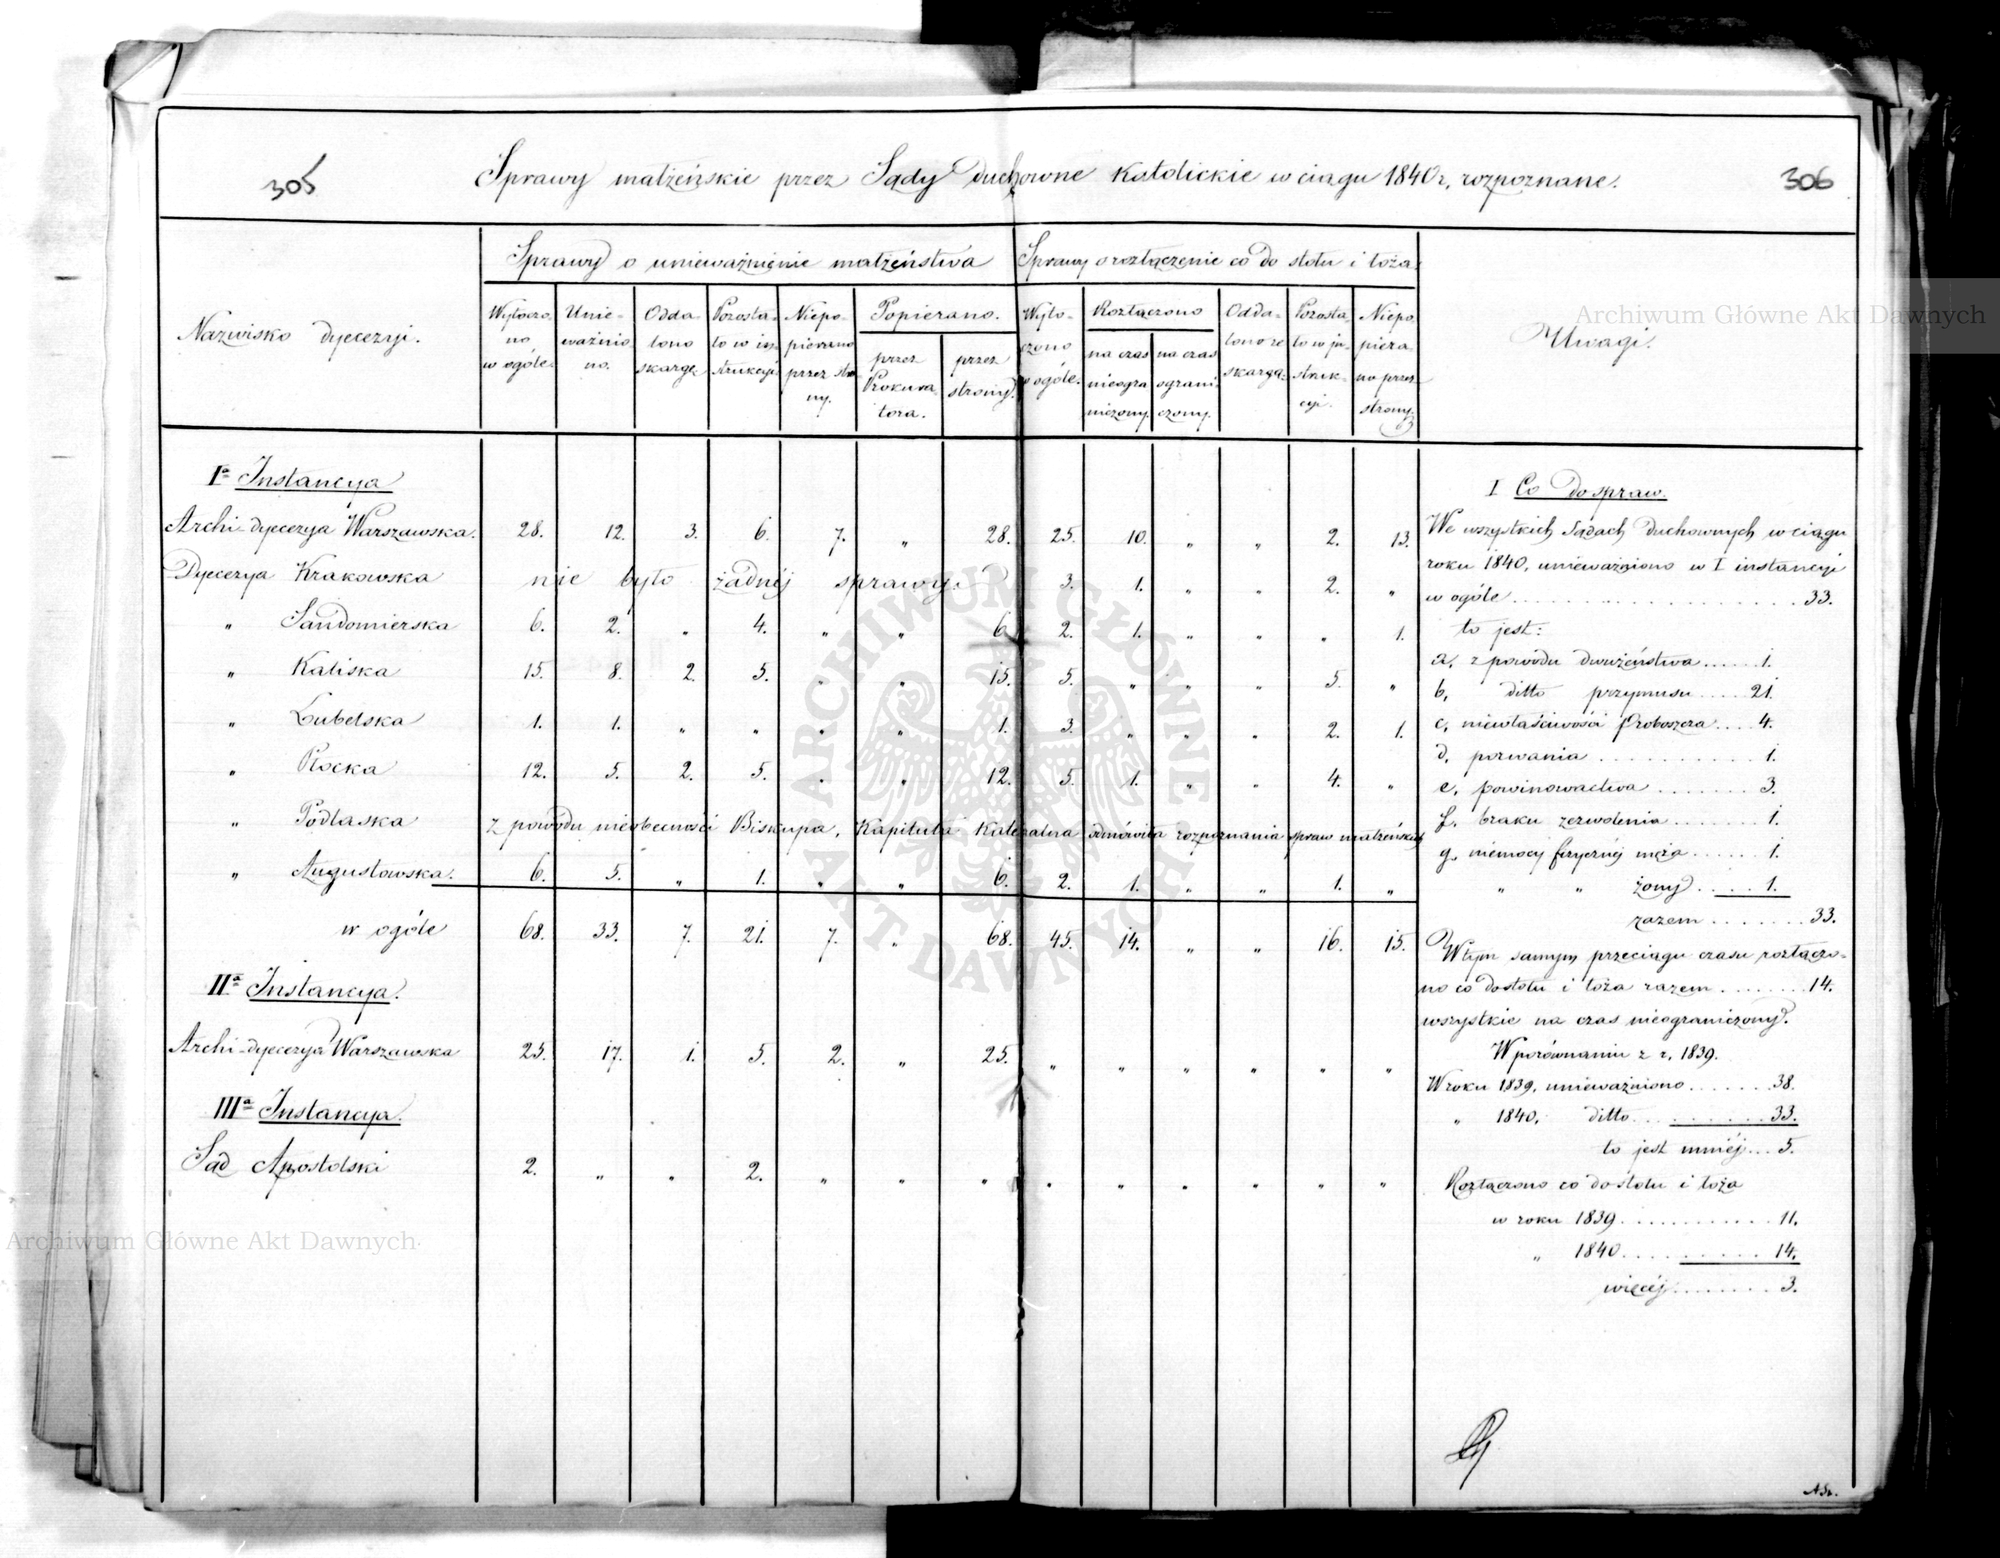 305
Sprawy małżeńskie przez Sądy Duchowne Katolickie w ciągu 1840 r, rozpoznane.
306
Nazwisko dyecezyi.
Sprawy o unieważnienie małżeństwa
Sprawy o rozłączenie co do stołu i łoża.
Uwagi.
Wytoczo-
no
w ogóle.
Unie-
ważnio
no.
Odda-
lono
skargę
Pozosta-
ło w in-
strukcyi
Niepo-
pierano
przez stro
ny.
Popierano.
przez
Prokura-
tora.
przez
strony.
Wyto-
czono
w ogóle.
Rozłączono
na czas
nieogra
niczony.
na czas
ograni-
czony.
Odda-
lono ze
skargą.
Pozosta-
ło w in-
struk-
cyi.
Niepo-
piera-
no przez
strony.
Iª Instancya
Archi-dyecezya Warszawska. 28. 12. 3. 6. 7. „ 28. 25. 10. „ „ 2. 13.
Dyecezya Krakowska nie było żadnéj sprawy. 3. 1. „ „ 2. „
„ Sandomierska 6. 2. „ 4. „ „ 6 2. 1. „ „ „ 1.
„ Kaliska 15. 8. 2. 5. „ „ 15. 5. „ „ „ 5. „
„ Lubelska 1. 1. „ „ „ „ 1. 3. „ „ „ 2. 1.
„ Płocka 12. 5. 2. 5. „ „ 12. 5. 1. „ „ 4. „
„ Podlaska z powodu nieobecności Biskupa, Kapituła Katedralna odmówiła rozpoznania spraw małżeńskich
„ Augustowska. 6. 5. „ 1. „ „ 6. 2. 1. „ „ 1. „
w ogóle 68. 33. 7. 21. 7. „ 68. 45. 14. „ „ 16. 15.
IIª Instancya.
Archi-dyecezya Warszawska 25. 17. 1. 5. 2. „ 25. „ „ „ „ „ „
IIIª Instancya.
Sąd Apostolski 2. „ „ 2. „ „ „ „ „ „ „ „ „
I Co do spraw.
We wszystkich Sądach Duchownych w ciągu
roku 1840, unieważniono w I instancyi
w ogóle . . . . . . . . . . 33.
to jest:
a, z powodu dwużeństwa . . . . . 1.
b, ditto przymusu . . . . 21.
c, niewłaściwości Proboszcza . . . 4.
d, porwania . . . . . . . . . . 1.
e, powinowactwa . . . . . . . 3.
f, braku zezwolenia . . . . . . 1.
g, niemocy fizycznéj męża . . . . . . 1.
„ „ żony . . . . 1.
razem . . . . . . . 33.
W tym samym przeciągu czasu rozłączo-
no co do stołu i łoża razem . . . . . . . . 14.
wszystkie na czas nieograniczony.
W porównaniu z r, 1839.
W roku 1839, unieważniono . . . . . . . 38.
„ 1840, ditto . . . . . . . . . 33.
to jest mniéj . . . 5.
Rozłączono co do stołu i łoża
w roku 1839 . . . . . . . . . . . 11.
„ 1840 . . . . . . . . . . 14.
więcéj . . . . . . . . 3.
Archiwum Główne Akt Dawnych
Archiwum Główne Akt Dawnych
ARCHIWUM GŁÓWNE AKT DAWNYCH